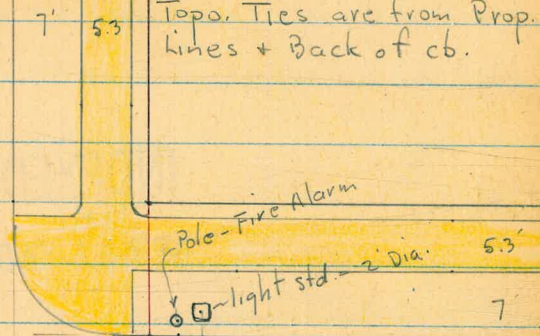 7' 5.3 Topo. Ties are from Prop.
Lines + Back of cb.
Pole - Fire Alarm
5.3'
light std. - 2' Dia.
7